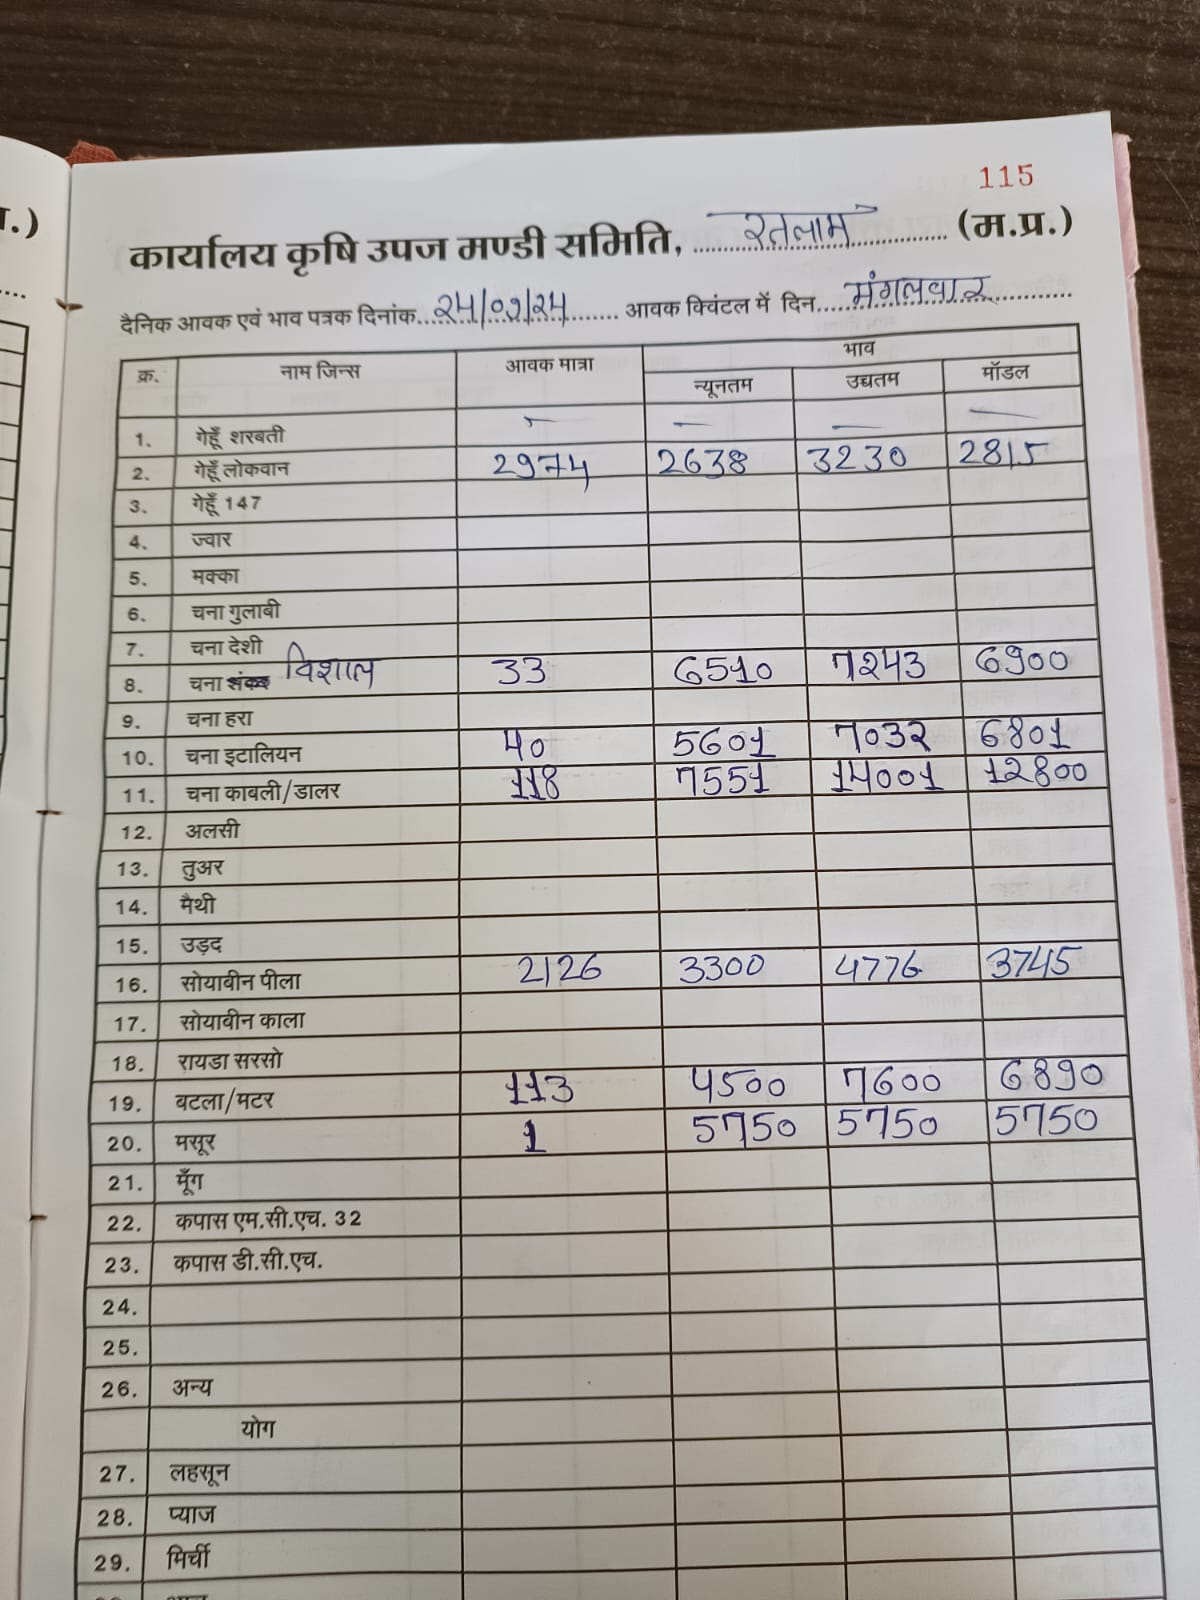 115
कार्यालय कृषि उपज मण्डी समिति, रतलाम (म.प्र.)
दैनिक आवक एवं भाव पत्रक दिनांक 24/09/24 आवक क्विंटल में दिन मंगलवार
क्र. नाम जिन्स आवक मात्रा भाव
न्यूनतम उच्चतम मॉडल
1. गेहूँ शरबती — — — —
2. गेहूँ लोकवान 2974 2638 3230 2815
3. गेहूँ 147
4. ज्वार
5. मक्का
6. चना गुलाबी
7. चना देशी
8. चना विशाल 33 6510 7243 6900
9. चना हरा
10. चना इटालियन 40 5601 7032 6801
11. चना काबली/डालर 118 7551 14001 12800
12. अलसी
13. तुअर
14. मैथी
15. उड़द
16. सोयाबीन पीला 2126 3300 4776 3745
17. सोयाबीन काला
18. रायडा सरसो
19. बटला/मटर 113 4500 7600 6890
20. मसूर 1 5750 5750 5750
21. मूँग
22. कपास एम.सी.एच. 32
23. कपास डी.सी.एच.
24.
25.
26. अन्य
योग
27. लहसून
28. प्याज
29. मिर्ची